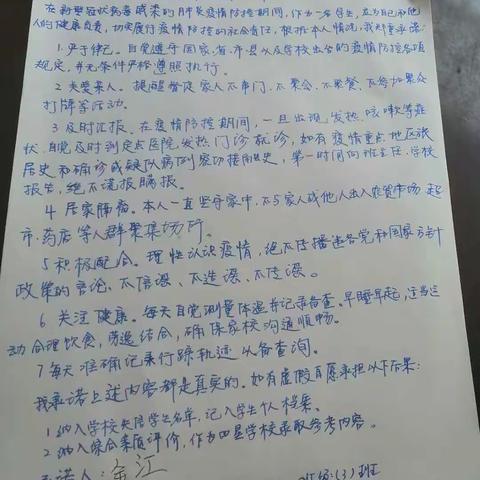 在新型冠状病毒感染的肺炎疫情防控期间，作为一名学生，应为自己和他
人的健康负责，切实履行疫情防控的社会责任，根据本人情况，我郑重承诺：
1.严于律己。自觉遵守国家、省、市、县以及学校出台的疫情防控各项
规定，并无条件严格遵照执行。
2.关爱家人。提醒督促家人不串门、不聚会、不聚餐、不参加聚众
打牌等活动。
3.及时汇报。在疫情防控期间，一旦出现发热、咳嗽等症
状，自觉及时到定点医院发热门诊就诊，如有疫情重点地区旅
居史和确诊或疑似病例密切接触史，第一时间向班主任、学校
报告，绝不谎报瞒报。
4.居家隔离。本人一直坚守家中，不与家人或他人出入农贸市场、超
市、药店等人群聚集场所。
5积极配合。理性认识疫情，绝不传播违各党和国家方针
政策的言论，不信谣、不造谣、不传谣。
6.关注健康。每天自觉测量体温并记录备查。早睡早起，适当运
动合理饮食，劳逸结合，确保家校沟通顺畅。
7每天准确记录行踪轨迹以备查询。
我承诺上述内容都是真实的。如有虚假自愿承担以下后果：
1.纳入学校失信学生名单，记入学生个人档案。
2.纳入综合素质评价，作为四星学校录取参考内容。
承诺人：金江
班级：（3）班